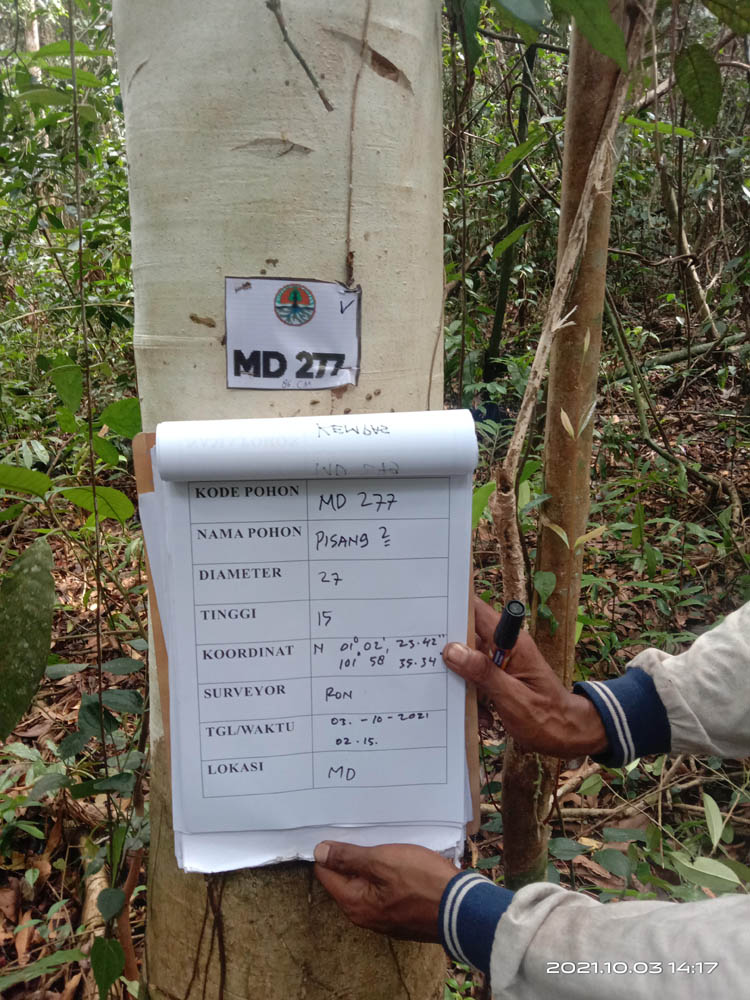 MD 277
86 CM
KODE POHON MD 277
NAMA POHON PISANG 2
DIAMETER 27
TINGGI 15
KOORDINAT N 01° 02', 23.42"
101° 58 35.34
SURVEYOR RON
TGL/WAKTU 03. -10-2021
02.15.
LOKASI MD
2021.10.03 14:17